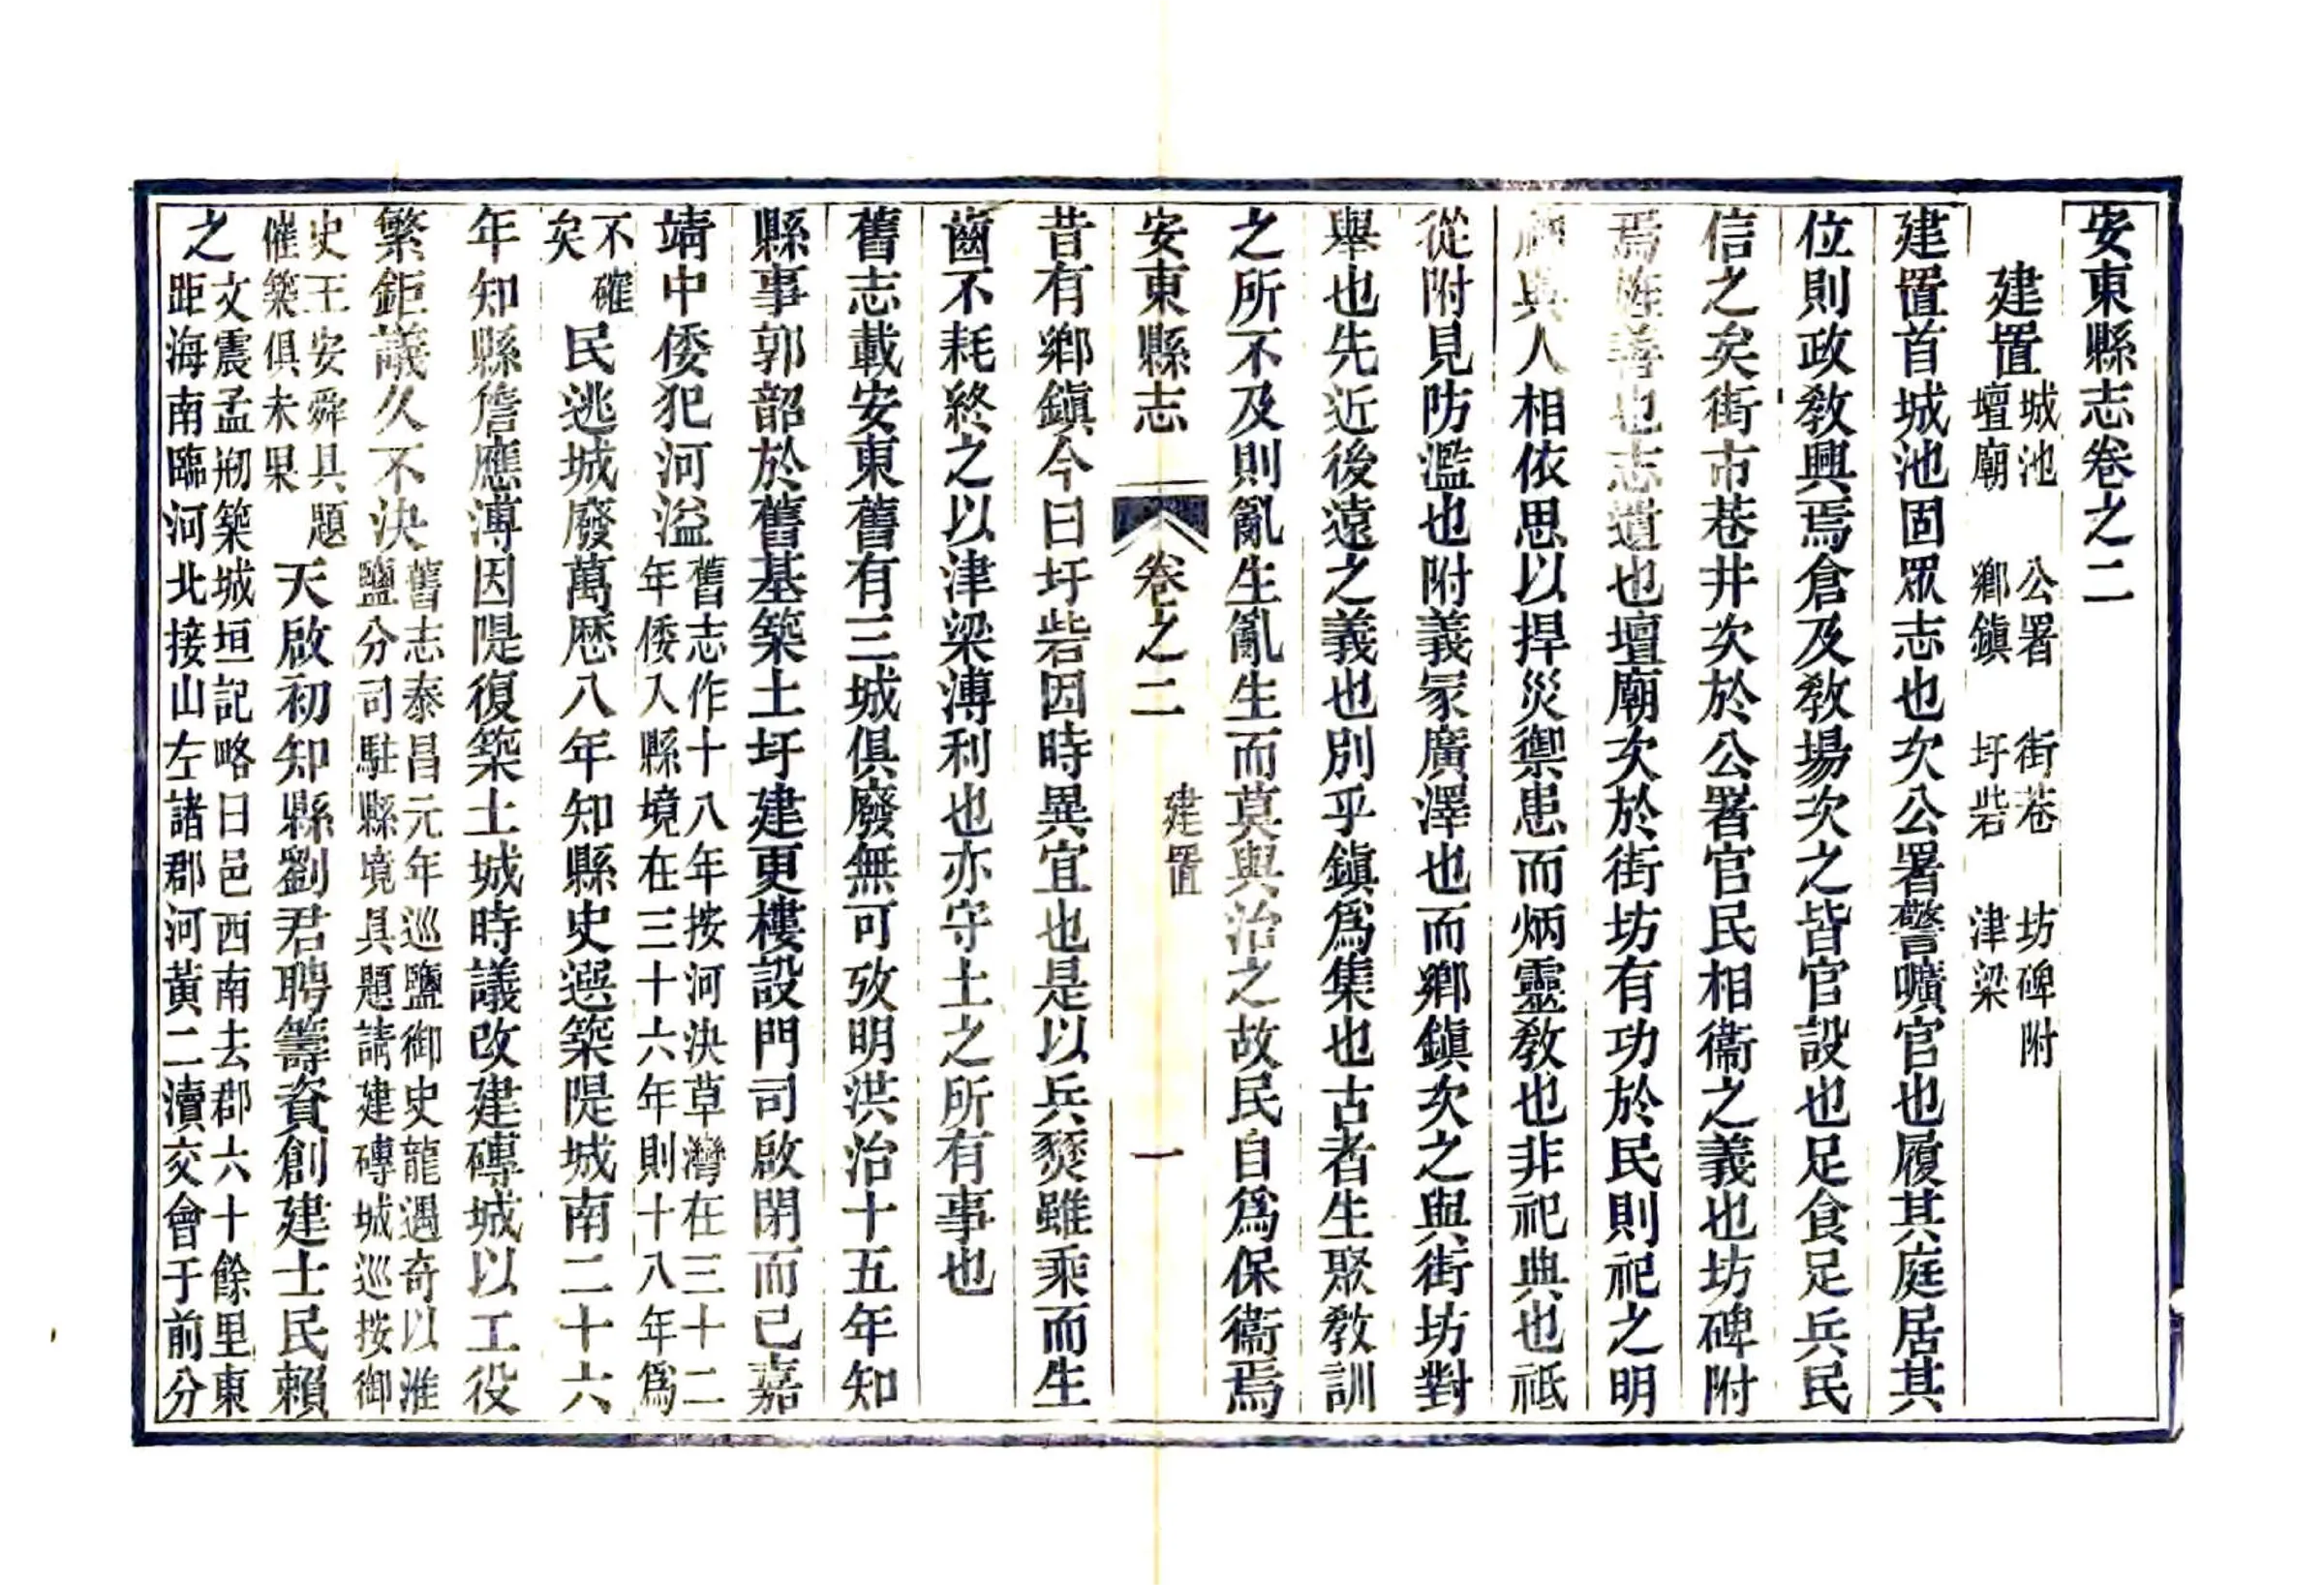 安東縣志卷之二
建置城池 公署 街巷 坊碑附
壇廟 鄉鎮 圩砦 津梁
建置首城池固眾志也次公署警曠官也履其庭居其
位則政敎興焉倉及敎場次之皆官設也足食足兵民
信之矣街市巷井次於公署官民相衞之義也坊碑附
焉旌善也志道也壇廟次於街坊有功於民則祀之明
神與人相依思以捍災禦患而炳靈敎也非祀典也祗
從附見防濫也附義冢廣澤也而鄉鎮次之與街坊對
舉也先近後遠之義也別乎鎮爲集也古者生聚敎訓
之所不及則亂生亂生而莫與治之故民自爲保衞焉
安東縣志 卷之二 建置 一
昔有鄉鎮今曰圩砦因時異宜也是以兵燹雖乘而生
齒不耗終之以津梁溥利也亦守土之所有事也
舊志載安東舊有三城俱廢無可攷明洪治十五年知
縣事郭韶於舊基築土圩建更樓設門司啟閉而已嘉
靖中倭犯河溢舊志作十八年按河決草灣在三十二
年倭入縣境在三十六年則十八年爲
不確
矣民逃城廢萬厯八年知縣史選築隄城南二十六
年知縣詹應溥因隄復築土城時議改建磚城以工役
繁鉅議久不決舊志泰昌元年巡鹽御史龍遇奇以淮
鹽分司駐縣境具題請建磚城巡按御
史王安舜具題
催築俱未果天啟初知縣劉君聘籌資創建士民賴
之文震孟刱築城垣記略曰邑西南去郡六十餘里東
距海南臨河北接山左諸郡河黃二瀆交會于前分